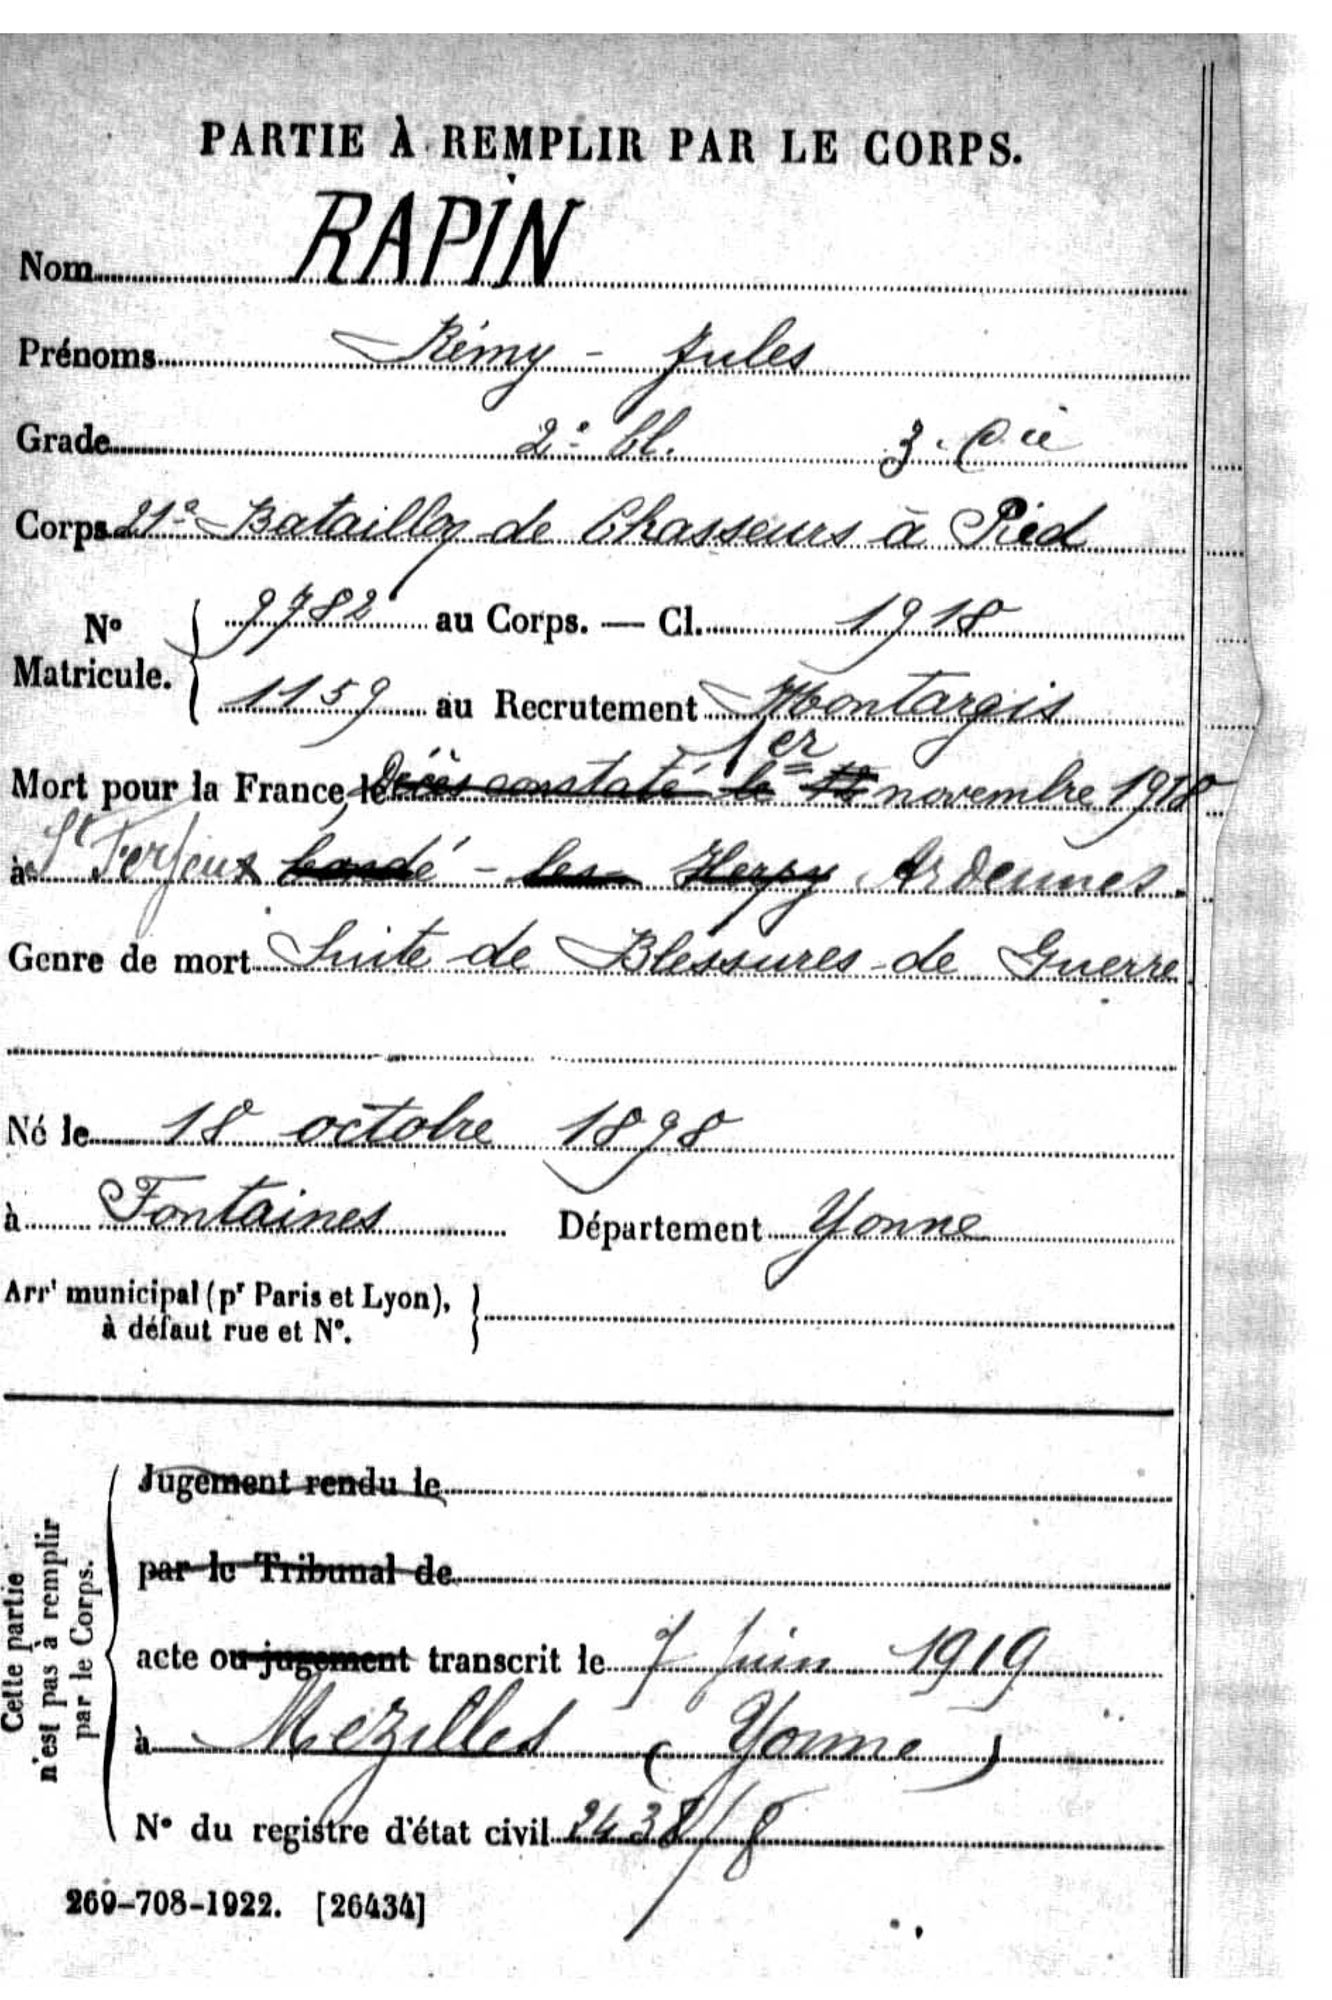 PARTIE À REMPLIR PAR LE CORPS.
Nom RAPIN
Prénoms Rémy - Jules
Grade 2e Cl. 3e Cie
Corps 21e Bataillon de Chasseurs à Pied
N° Matricule. { 9782 au Corps. — Cl. 1918
1159 au Recrutement Montargis
1er
Mort pour la France, le Décès constaté le novembre 1918
à St Ferjeux Condé - les - Herpy Ardennes.
Genre de mort Suite de Blessures de Guerre
Né le 18 octobre 1898
à Fontaines Département Yonne
Arrt municipal (pr Paris et Lyon), }
à défaut rue et N°.
Cette partie
n'est pas à remplir
par le Corps.
Jugement rendu le
par le Tribunal de
acte ou jugement transcrit le 7 Juin 1919
à Mezilles (Yonne)
N° du registre d'état civil 2438/8
269-708-1922. [26434]